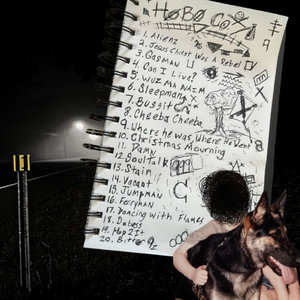 HoBo Co.
1. Alienz
2. Jesus Christ Was A Rebel
3. GasMan
4. Can I Live?
5. WUZ MA NAZM
6. Sleepman
7. Buggit
8. Cheeba Cheeba
9. Where he was, Where He Went
10. Christmas Mourning
11. Damn
12. SoulTalk
13. Stain
14. Vacant
15. Jumpman
16.
17. Dancing with Flames
18.
19. Hop 2 It
20. Bitter